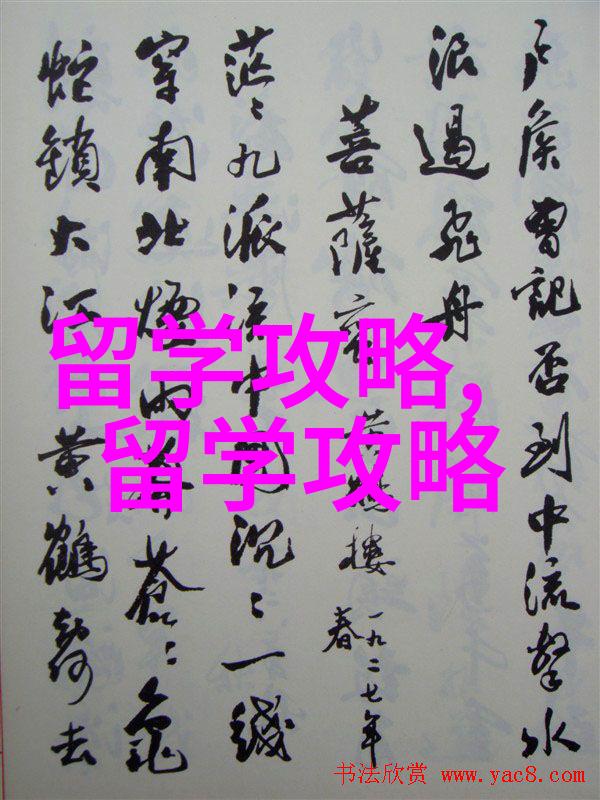 户侯曾記否到中流擊水
浪遏飛舟
菩薩蛮 黄鹤樓 一九二七年
春
茫〻九派流中國沉〻一綫
穿南北煙雨莽蒼〻龜
蛇鎖大江黄鶴知何去
留学攻略,
留学攻略
书法欣赏 www.yac8.com